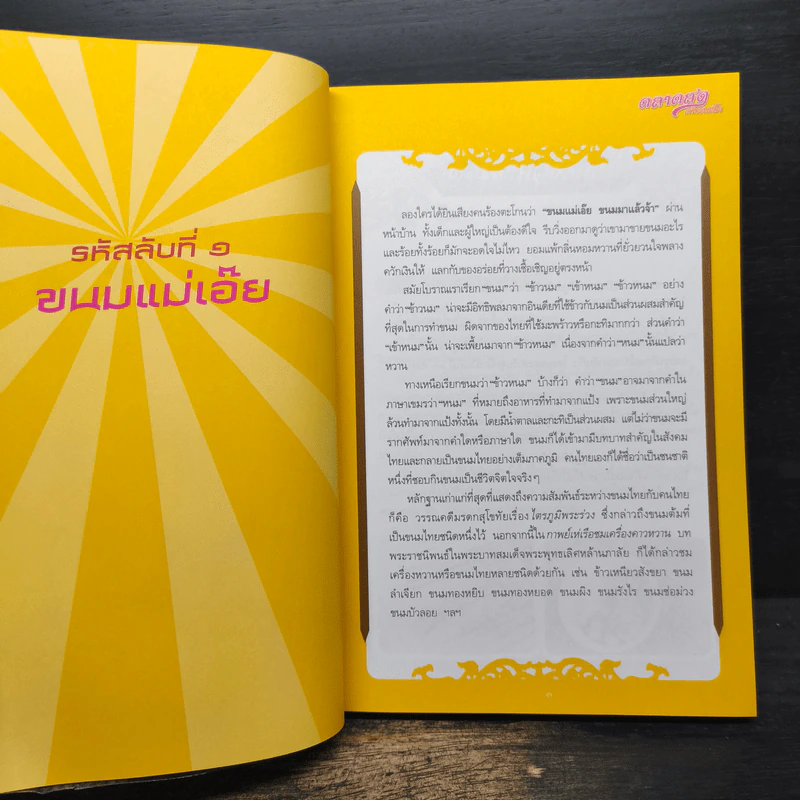 รหัสลับที่ ๑
ขนมแม่เอ๊ย
ตลาดสด
ลองใครได้ยินเสียงคนร้องตะโกนว่า “ขนมแม่เอ๊ย ขนมมาแล้วจ้า” ผ่าน
หน้าบ้าน ทั้งเด็กและผู้ใหญ่เป็นต้องดีใจ รีบวิ่งออกมาดูว่าเขามาขายขนมอะไร
และร้อยทั้งร้อยก็มักจะอดใจไม่ไหว ยอมแพ้กลิ่นหอมหวานที่ยั่วยวนใจพลาง
ควักเงินให้ แลกกับของอร่อยที่วางเชื้อเชิญอยู่ตรงหน้า
สมัยโบราณเราเรียก“ขนม”ว่า “ข้าวนม” “เข้าหนม” “ข้าวหนม” อย่าง
คำว่า“ข้าวนม” น่าจะมีอิทธิพลมาจากอินเดียที่ใช้ข้าวกับนมเป็นส่วนผสมสำคัญ
ที่สุดในการทำขนม ผิดจากของไทยที่ใช้มะพร้าวหรือกะทิมากกว่า ส่วนคำว่า
“เข้าหนม”นั้น น่าจะเพี้ยนมาจาก“ข้าวหนม” เนื่องจากคำว่า“หนม”นั้นแปลว่า
หวาน
ทางเหนือเรียกขนมว่า“ข้าวหนม” บ้างก็ว่า คำว่า“ขนม”อาจมาจากคำใน
ภาษาเขมรว่า“หนม” ที่หมายถึงอาหารที่ทำมาจากแป้ง เพราะขนมส่วนใหญ่
ล้วนทำมาจากแป้งทั้งนั้น โดยมีน้ำตาลและกะทิเป็นส่วนผสม แต่ไม่ว่าขนมจะมี
รากศัพท์มาจากคำใดหรือภาษาใด ขนมก็ได้เข้ามามีบทบาทสำคัญในสังคม
ไทยและกลายเป็นขนมไทยอย่างเต็มภาคภูมิ คนไทยเองก็ได้ชื่อว่าเป็นชนชาติ
หนึ่งที่ชอบกินขนมเป็นชีวิตจิตใจจริงๆ
หลักฐานเก่าแก่ที่สุดที่แสดงถึงความสัมพันธ์ระหว่างขนมไทยกับคนไทย
ก็คือ วรรณคดีมรดกสุโขทัยเรื่อง ไตรภูมิพระร่วง ซึ่งกล่าวถึงขนมต้มที่
เป็นขนมไทยชนิดหนึ่งไว้ นอกจากนี้ใน กาพย์เห่เรือชมเครื่องคาวหวาน บท
พระราชนิพนธ์ในพระบาทสมเด็จพระพุทธเลิศหล้านภาลัย ก็ได้กล่าวชม
เครื่องหวานหรือขนมไทยหลายชนิดด้วยกัน เช่น ข้าวเหนียวสังขยา ขนม
ลำเจียก ขนมทองหยิบ ขนมทองหยอด ขนมผิง ขนมรังไร ขนมช่อม่วง
ขนมบัวลอย ฯลฯ